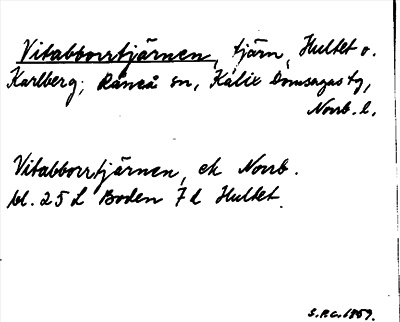 Vitabborrtjärnen, tjärn, Hultet o.
Karlberg; Råneå sn, Kalix Domsagas tg,
Norrb. l.
Vitabborrtjärnen, ek Norrb.
bl. 25 L Boden 7 d Hultet.
S.R.G. 1859.